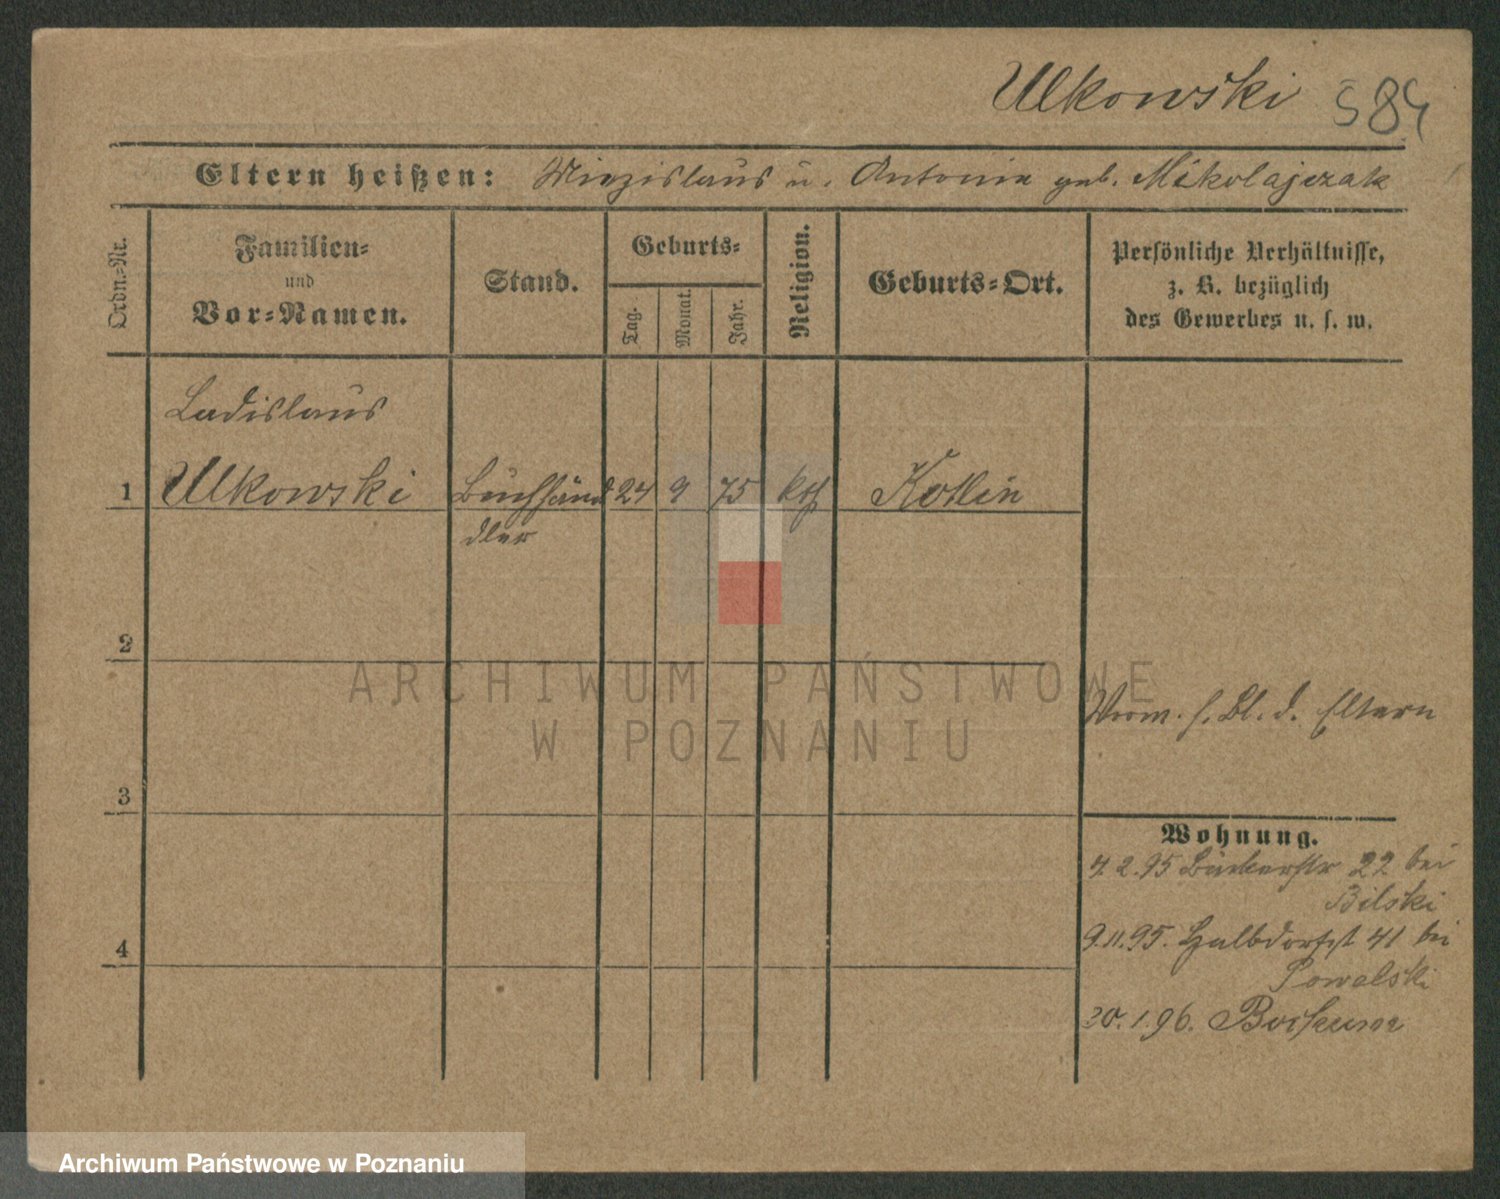 Ulkowski 584
Eltern heißen: Miezislaus u. Antonie geb. Mikolajczak
Ordn.-Nr.
Familien-
und
Vor-Namen.
Stand.
Geburts-
Tag.
Monat.
Jahr.
Religion.
Geburts-Ort.
Persönliche Verhältnisse,
z. B. bezüglich
des Gewerbes u. s. w.
Ladislaus
1 Ulkowski Buchhänd 24 9 75 kth Kotlin
dler
2
ARCHIWUM PAŃSTWOWE
W POZNANIU
Verm. s. Bl. d. Eltern
3
Wohnung.
4.2.95 Bäckerstr 22 bei
Bilski
4
9.11.95. Halbdorfst 41 bei
Powalski
30.1.96. Bochum
Archiwum Państwowe w Poznaniu